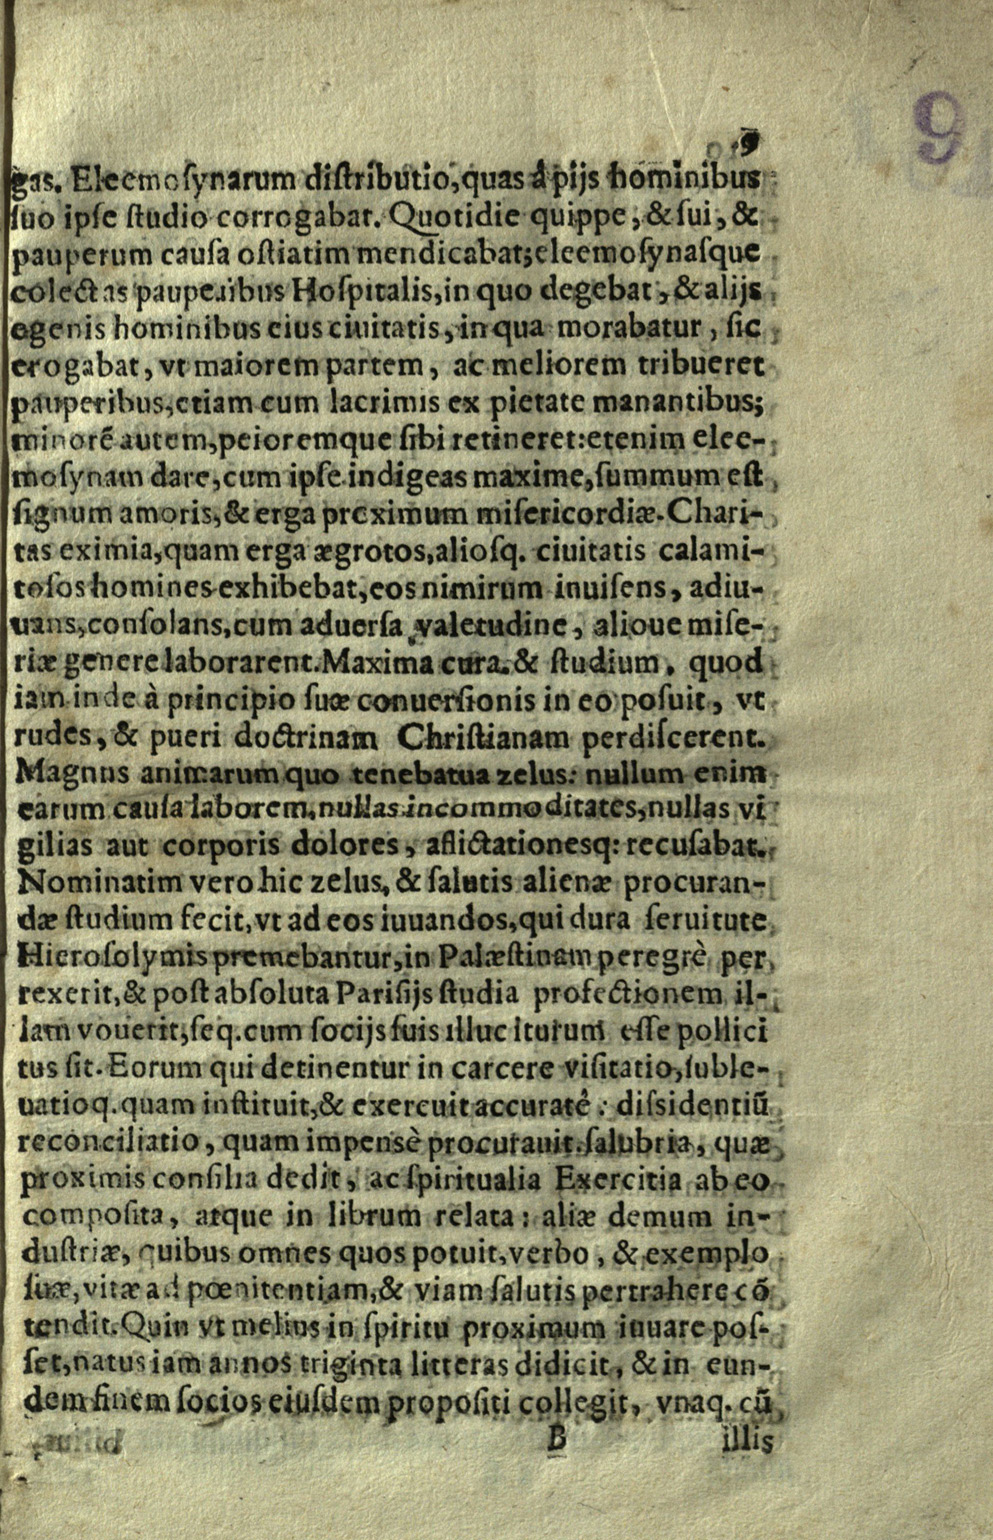 9
9
gas. Eleemoſynarum diſtributio, quas à pijs hominibus
ſuo ipſe ſtudio corrogabat. Quotidie quippe, & ſui, &
pauperum cauſa oſtiatim mendicabat; eleemoſynaſque
colectas pauperibus Hoſpitalis, in quo degebat, & alijs
egenis hominibus eius ciuitatis, in qua morabatur, ſic
erogabat, vt maiorem partem, ac meliorem tribueret
pauperibus, etiam cum lacrimis ex pietate manantibus;
minorē autem, peioremque ſibi retineret: etenim elee-
moſynam dare, cum ipſe indigeas maxime, ſummum eſt
ſignum amoris, & erga proximum miſericordiæ. Chari-
tas eximia, quam erga ægrotos, alioſq. ciuitatis calami-
toſos homines exhibebat, eos nimirum inuiſens, adiu-
uans, conſolans, cum aduerſa valetudine, alioue miſe-
riæ genere laborarent. Maxima cura, & ſtudium, quod
iam inde à principio ſuæ conuerſionis in eo poſuit, vt
rudes, & pueri doctrinam Chriſtianam perdiſcerent.
Magnus animarum quo tenebatua zelus: nullum enim
earum cauſa laborem, nullas incommoditates, nullas vi
gilias aut corporis dolores, aflictationesq: recuſabat.
Nominatim vero hic zelus, & ſalutis alienæ procuran-
dæ ſtudium fecit, vt ad eos iuuandos, qui dura ſeruitute
Hieroſolymis premebantur, in Palæſtinam peregrè per
rexerit, & poſt abſoluta Pariſijs ſtudia profectionem il-
lam vouerit, ſeq. cum ſocijs ſuis illuc iturum eſſe pollici
tus ſit. Eorum qui detinentur in carcere viſitatio, ſuble-
uatioq. quam inſtituit, & exercuit accuratê: diſsidentiū
reconciliatio, quam impensè procurauit. ſalubria, quæ
proximis conſilia dedit, ac ſpiritualia Exercitia ab eo
compoſita, atque in librum relata: aliæ demum in-
duſtriæ, quibus omnes quos potuit, verbo, & exemplo
ſuæ, vitæ ad pœnitentiam, & viam ſalutis pertrahere cō
tendit. Quin vt melius in ſpiritu proximum iuuare poſ-
ſet, natus iam annos triginta litteras didicit, & in eun-
dem finem ſocios eiuſdem propoſiti collegit, vnaq. cū
B illis